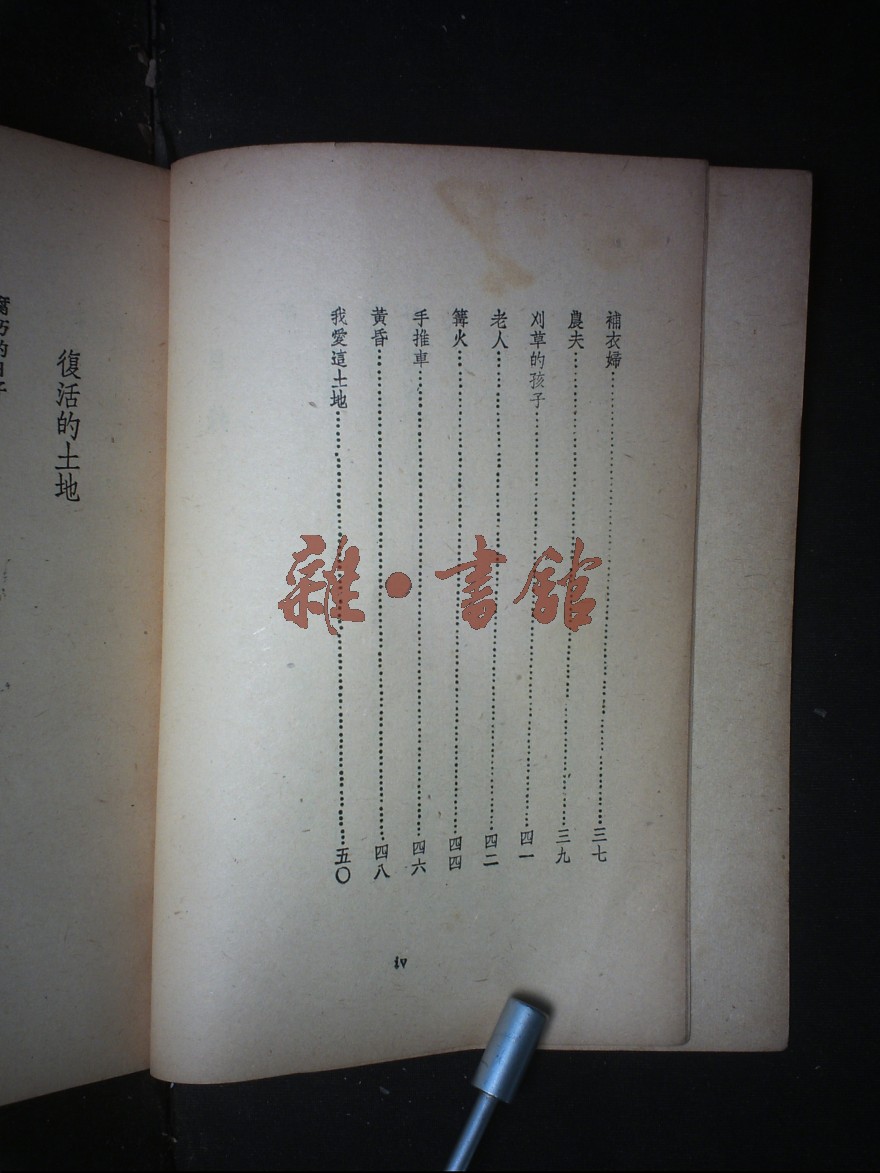 補衣婦……三七
農夫……三九
刈草的孩子……四一
老人……四二
篝火……四四
手推車……四六
黃昏……四八
我愛這土地……五〇
iv
雜·書館
復活的土地
腐朽的日子